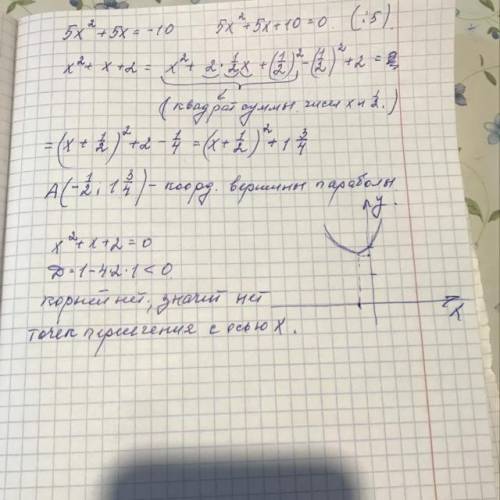 5x² + 5x = -10 5x² + 5x + 10 = 0 (:5)
x² + x + 2 = x² + 2·½x + (½)² - (½)² + 2 =
(квадрат суммы чисел x и ½.)
= (x + ½)² + 2 - ¼ = (x + ½)² + 1 ¾
A(-½; 1 ¾) - коорд. вершины параболы
y.
x² + x + 2 = 0
D = 1 - 4·2·1 < 0
корней нет, значит нет
x
точек пересечения с осью x.